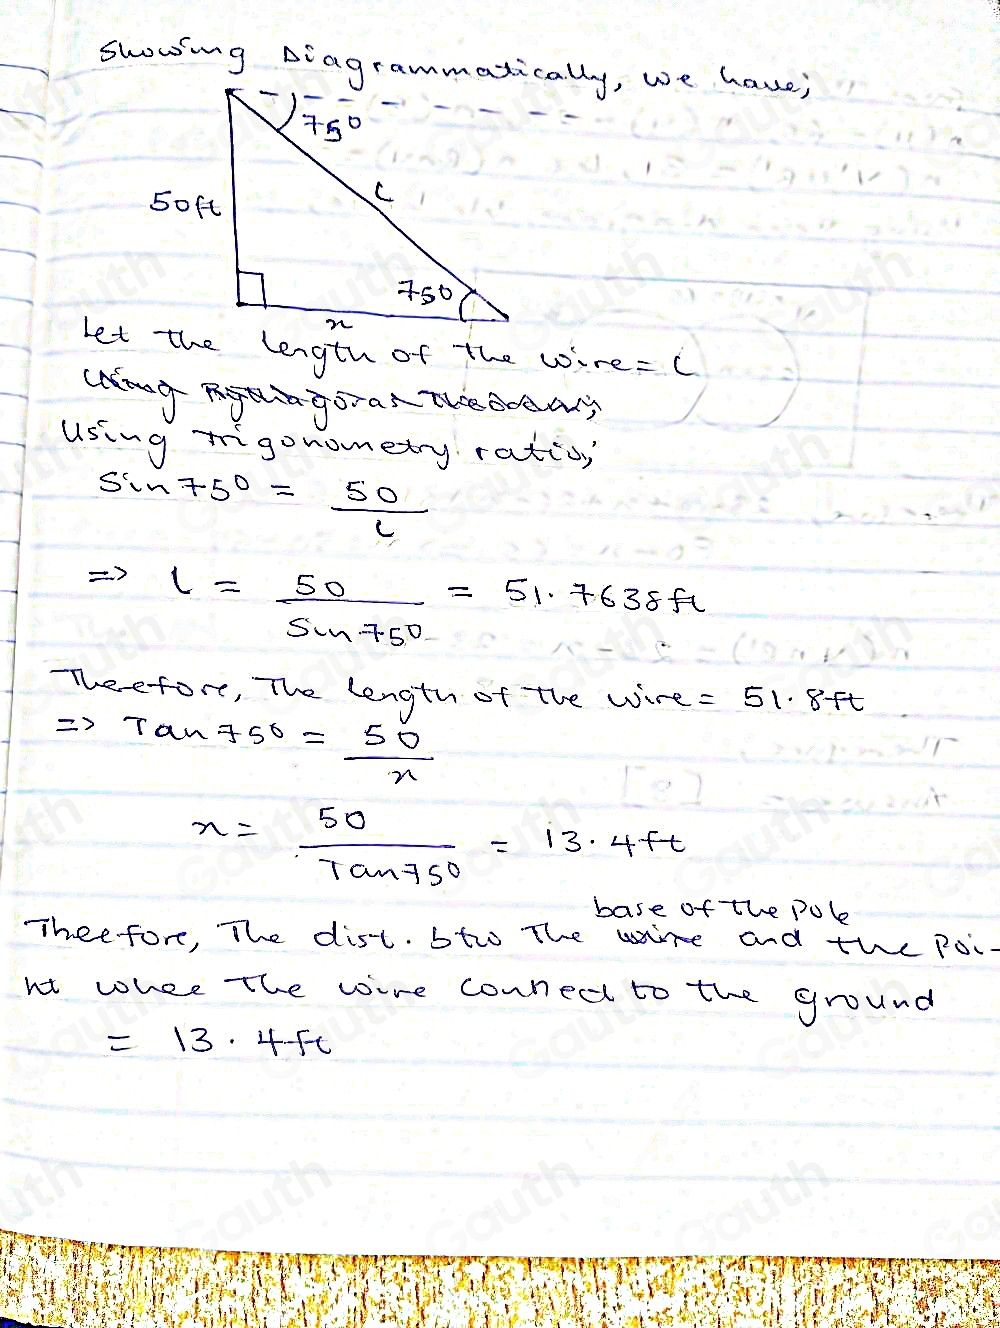 Showing Diagrammatically, we have;
75°
50ft
L
75°
x
Let the length of the wire = L
Using Pythagoras Theorem;
Using trigonometry ratio;
Sin 75° = 50/L
=> L = 50/Sin 75° = 51.7638ft
Therefore, The length of the wire = 51.8ft
=> Tan 75° = 50/x
x = 50/Tan 75° = 13.4ft
base of the Pole
Theefore, The dist. btw The wire and the Poi-
nt whee The wire conned to the ground
= 13.4ft
Gauth